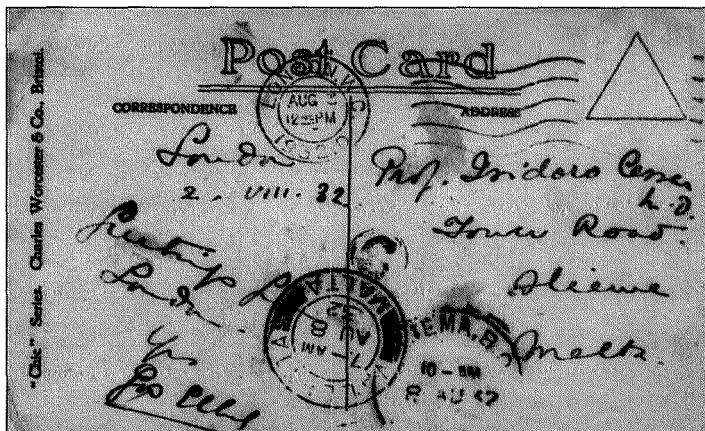 "Chic" Series. Charles Worcester & Co., Bristol.
Post Card
CORRESPONDENCE
ADDRESS
LONDON. W.C.
AUG
PM
1932
London
2. VIII. 32
Greetings from
London
Yrs
Prof. Isidoro
L. D.
Tower Road
Sliema
Malta.
VALLETTA
MALTA
AM
8 AU
32
SLIEMA, B.O
10 - AM
8 AU 32